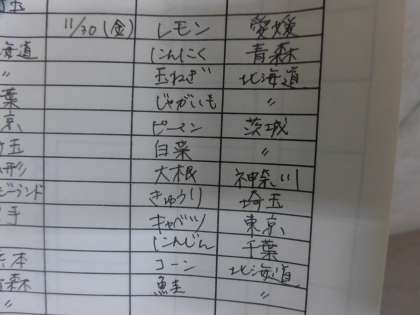 11/30(金) レモン 愛媛
海道 にんにく 青森
〃 玉ねぎ 北海道
葉 じゃがいも 〃
京 ピーマン 茨城
玉 白菜 〃
形 大根 神奈川
ランド きゅうり 埼玉
手 キャベツ 東京
にんじん 千葉
本 コーン 北海道
森 鮭 〃
〃